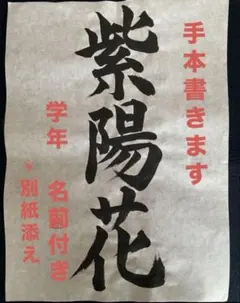 手本書きます
紫陽花
学年　名前付き
・別紙添え